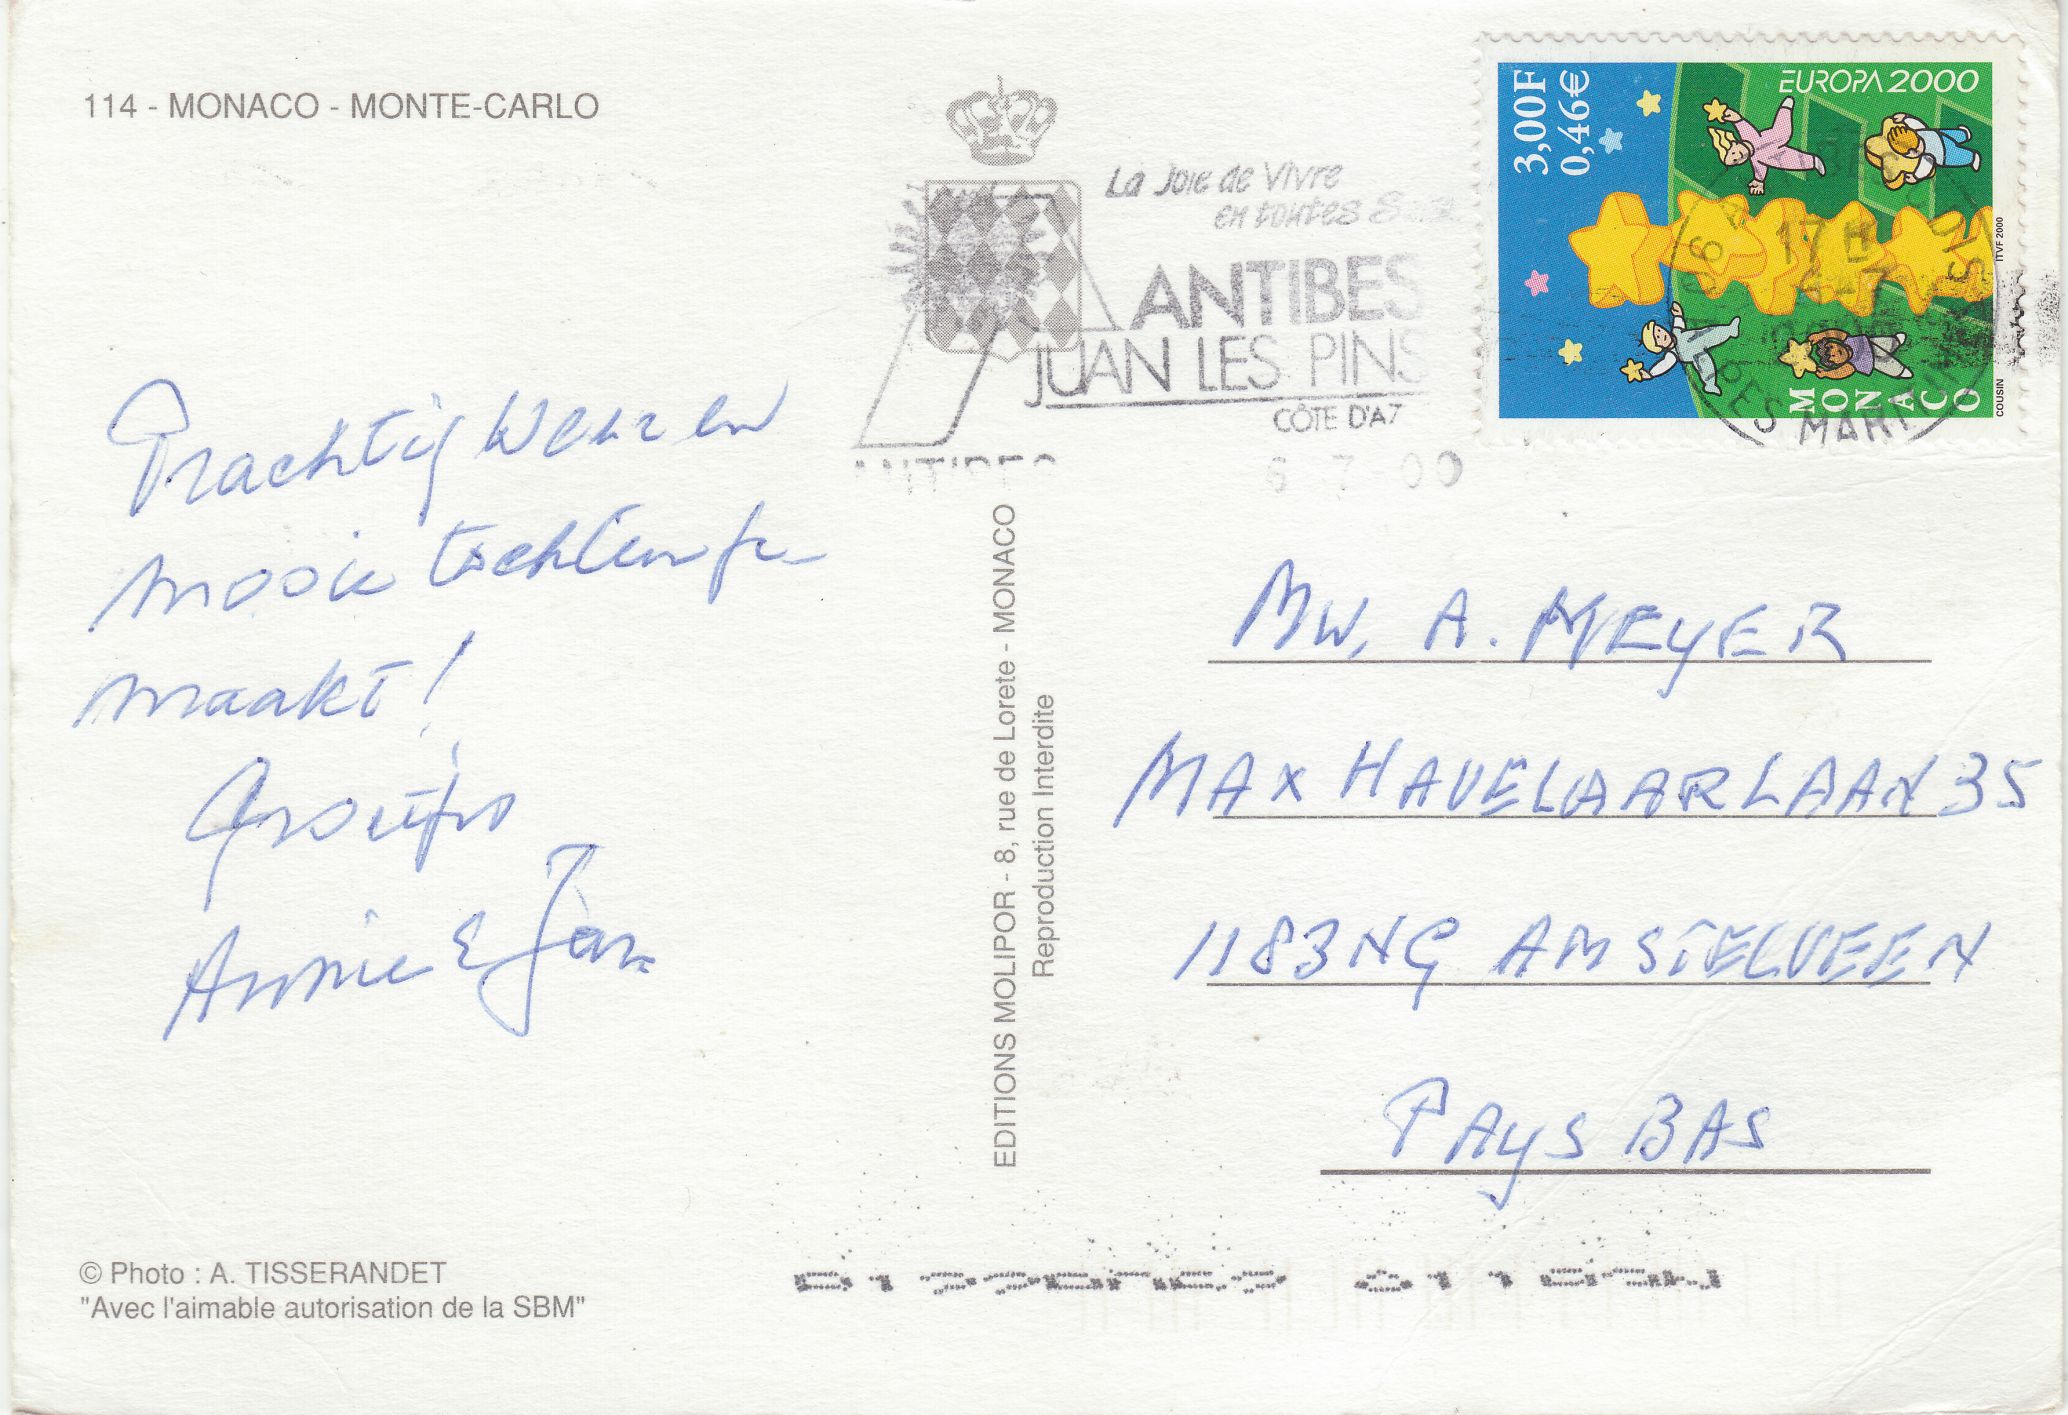 114 - MONACO - MONTE-CARLO
La Joie de Vivre
en toutes
ANTIBES
JUAN LES PINS
CÔTE D'AZ
ANTIBES
6-7-00
EUROPA 2000
3,00F
0,46€
MONACO
ITVF 2000
COUSIN
17H
6-7
Prachtig
mooie
maakt!
Groetjes
Annie & Jan
EDITIONS MOLIPOR - 8, rue de Lorete - MONACO
Reproduction Interdite
MW. A. MEYER
MAX HAVELAARLAAN 35
1183NG AMSTELVEEN
PAYS BAS
© Photo : A. TISSERANDET
"Avec l'aimable autorisation de la SBM"